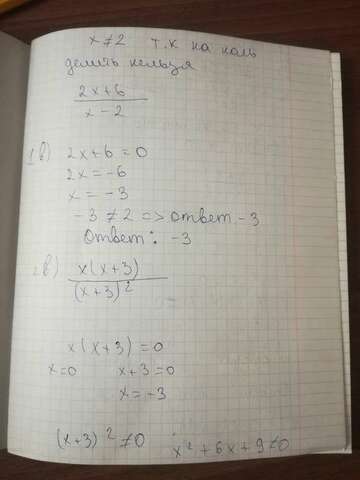 x ≠ 2 т.к на ноль
делить нельзя
2x+6
x-2
1в) 2x+6=0
2x=-6
x=-3
-3≠2 => ответ -3
Ответ: -3
2в) x(x+3)
(x+3)²
x(x+3)=0
x=0 x+3=0
x=-3
(x+3)²≠0 x²+6x+9≠0